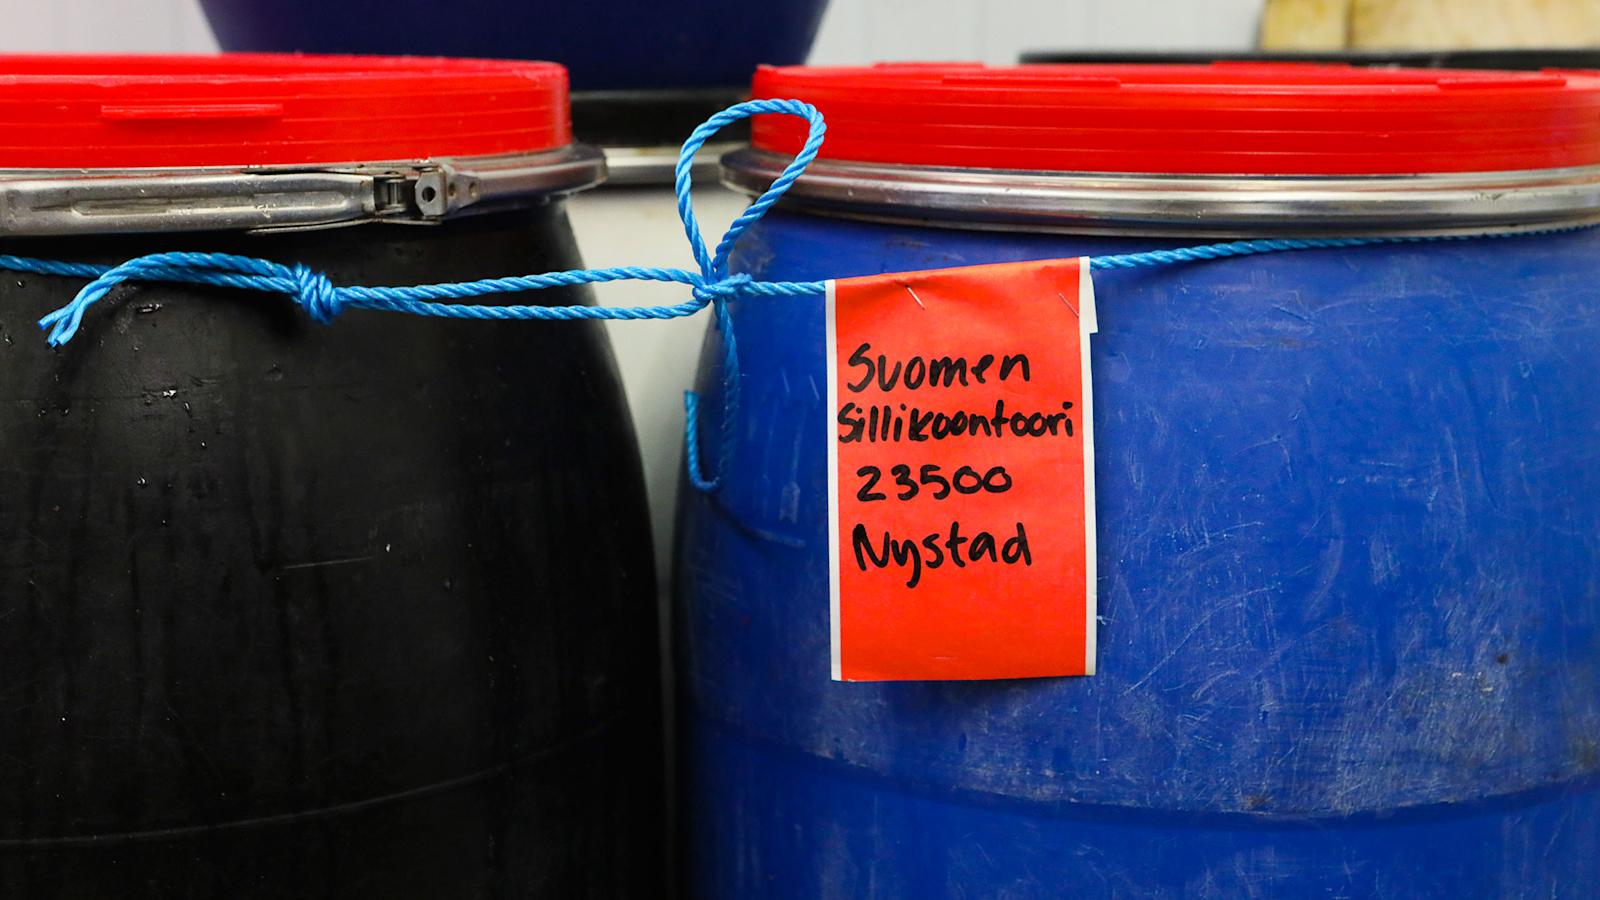 Suomen
Sillikoontoori
23500
Nystad